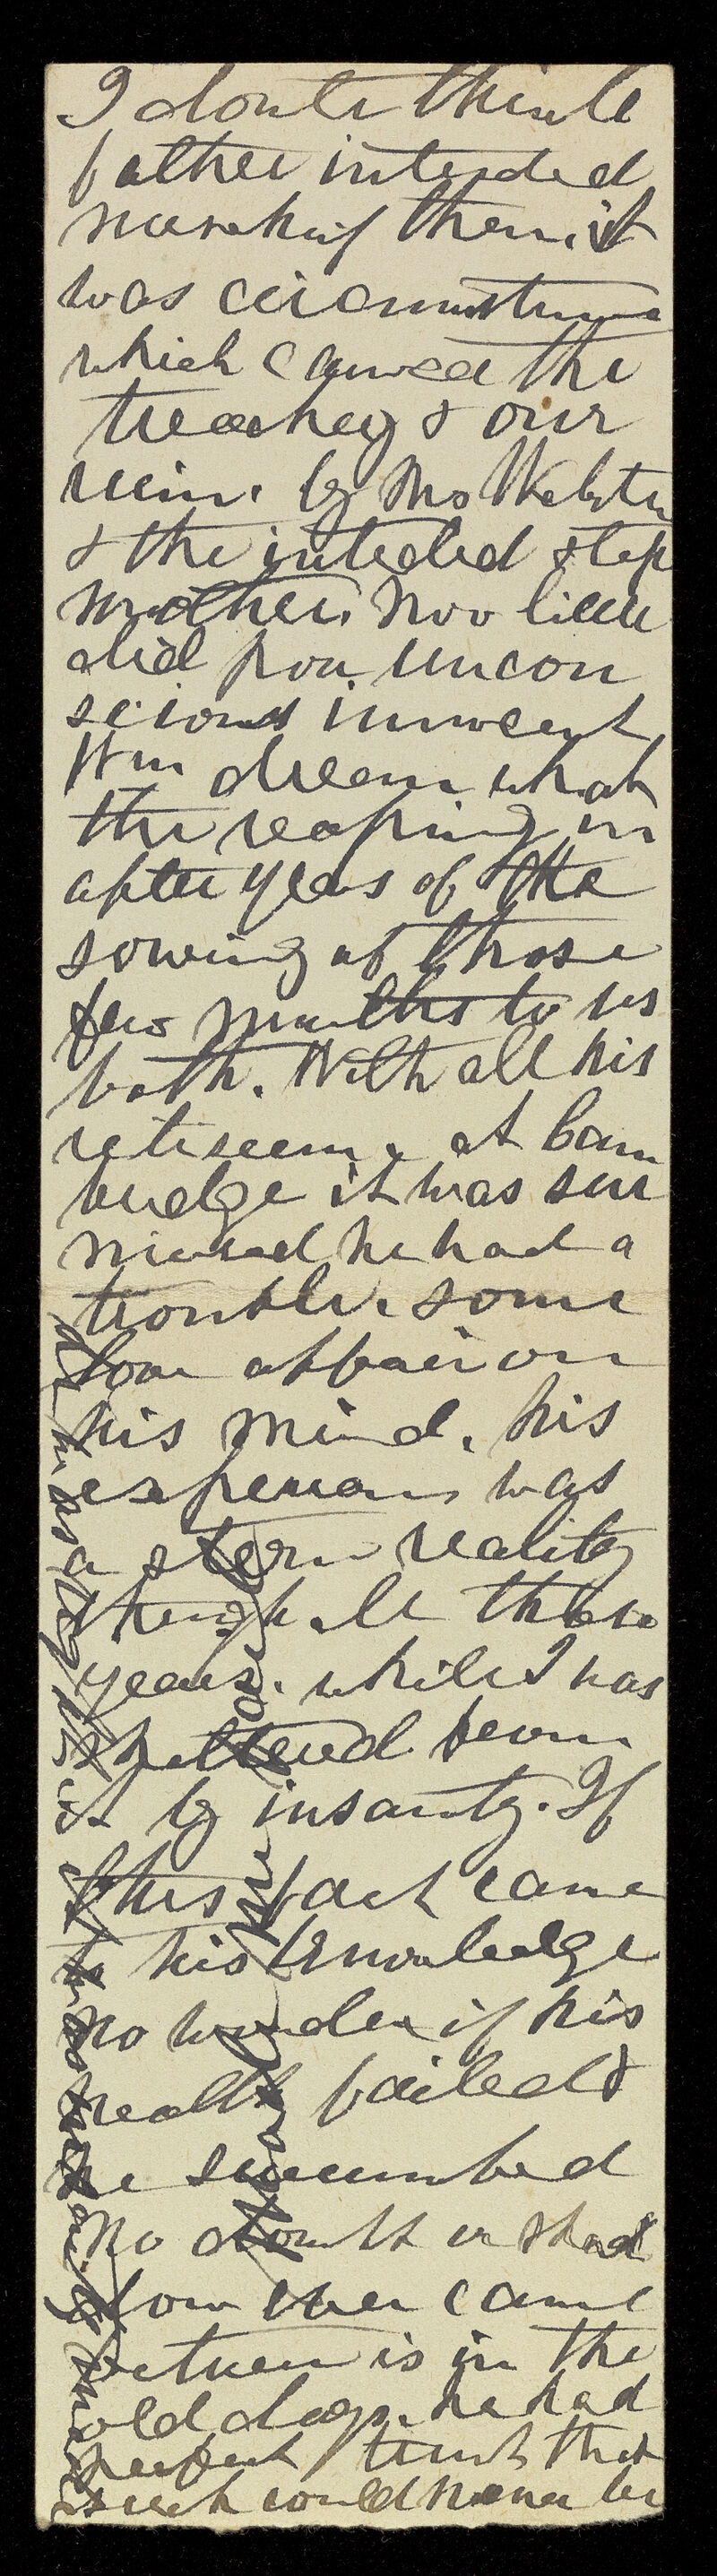 I dont think
father intended
mischief then it
was circumstance
which caused the
treachey & our
ruin. by Mrs Webster
& the inteded step
mother. how little
did you uncon
scious innocent
Wm dream what
the reaping in
after years of the
sowing of those
few months to us
both. With all his
at Cam
bridge it was sur
mised he had a
trouble. some
love affair on
his mind. his
was
a stern reality
through all these
years. while I was
from
it by insanity. If
this fact came
to his knowledge
no wonder if his
health failed &
he sucumbed
No doubt or shad
ow ever came
between us in the
old days. he had
perfect trust that
such could never be